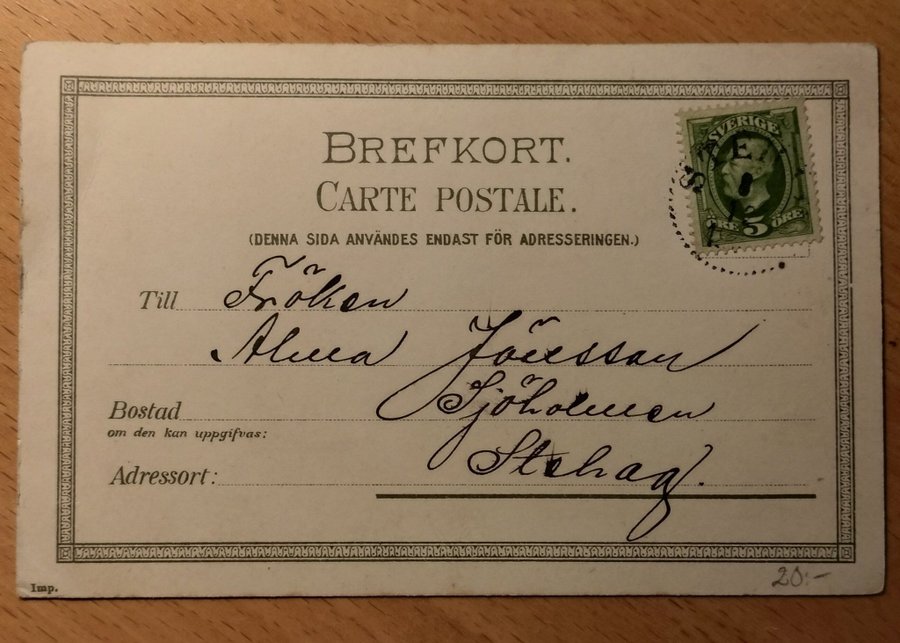 BREFKORT.
CARTE POSTALE.
(DENNA SIDA ANVÄNDES ENDAST FÖR ADRESSERINGEN.)
SVERIGE
ÖRE 5 ÖRE
Till Fröken
Alma Jönsson
Bostad Sjöholmen
om den kan uppgifvas:
Adressort: Stehag.
Imp.
20:-